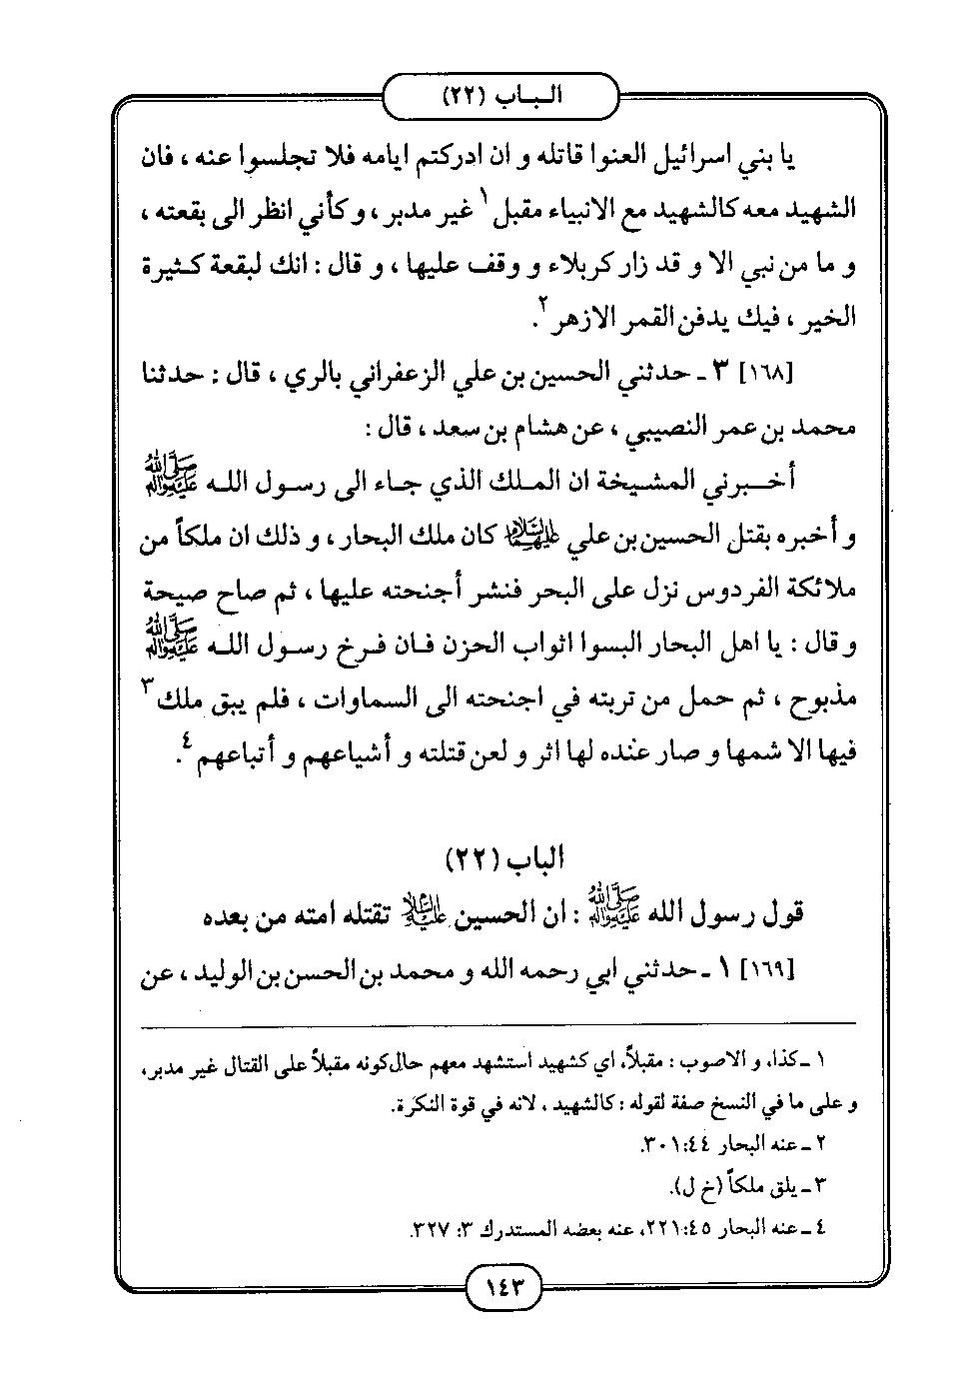 الباب (٢٢)
يا بني اسرائيل العنوا قاتله و ان ادركتم ايامه فلا تجلسوا عنه ، فان
الشهيد معه كالشهيد مع الانبياء مقبل١ غير مدبر ، و كأني انظر الى بقعته ،
و ما من نبي الا و قد زار كربلاء و وقف عليها ، و قال : انك لبقعة كثيرة
الخير ، فيك يدفن القمر الازهر٢.
[١٦٨] ٣ ـ حدثني الحسين بن علي الزعفراني بالري ، قال : حدثنا
محمد بن عمر النصيبي ، عن هشام بن سعد ، قال :
أخبرني المشيخة ان الملك الذي جاء الى رسول الله صلى الله عليه وآله
و أخبره بقتل الحسين بن علي عليهما السلام كان ملك البحار ، و ذلك ان ملكاً من
ملائكة الفردوس نزل على البحر فنشر أجنحته عليها ، ثم صاح صيحة
و قال : يا اهل البحار البسوا اثواب الحزن فان فرخ رسول الله صلى الله عليه وآله
مذبوح ، ثم حمل من تربته في اجنحته الى السماوات ، فلم يبق ملك٣
فيها الا شمها و صار عنده لها اثر و لعن قتلته و أشياعهم و أتباعهم٤.
الباب (٢٢)
قول رسول الله صلى الله عليه وآله : ان الحسين عليه السلام تقتله امته من بعده
[١٦٩] ١ ـ حدثني ابي رحمه الله و محمد بن الحسن بن الوليد ، عن
١ ـ كذا، و الاصوب : مقبلاً، اي كشهيد استشهد معهم حال كونه مقبلاً على القتال غير مدبر،
و على ما في النسخ صفة لقوله : كالشهيد ، لانه في قوة النكرة.
٢ ـ عنه البحار ٣٠١:٤٤.
٣ ـ يلق ملكاً (خ ل).
٤ ـ عنه البحار ٢٢١:٤٥، عنه بعضه المستدرك ٣: ٣٢٧.
١٤٣